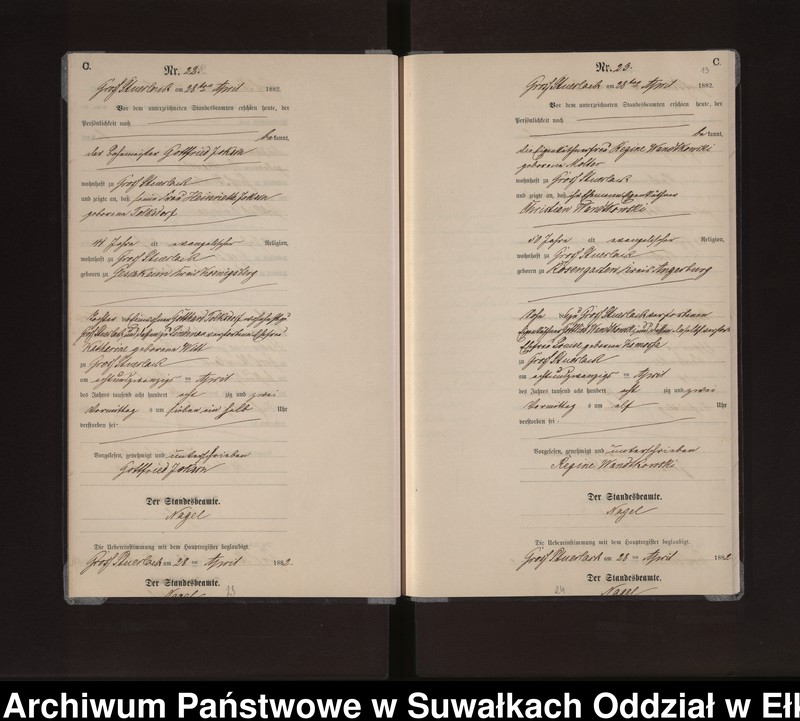 C.
Nr. 22.
Groß Stuerlack am 28ten April 1882.
Vor dem unterzeichneten Standesbeamten erschien heute, der
Persönlichkeit nach
bekannt,
Gottfried
wohnhaft zu Groß Stuerlack
und zeigte an, daß seine Frau Henriette
geborene Tolksdorf
Jahre alt evangelischer Religion,
wohnhaft zu Groß Stuerlack
geboren zu Kreis Königsberg
geborene
zu Groß Stuerlack
am achtundzwanzigsten April
des Jahres tausend acht hundert achtzig und zwei
Vormittags um sieben ein halb Uhr
verstorben sei.
Vorgelesen, genehmigt und unterschrieben
Gottfried
Der Standesbeamte.
Nagel
Die Uebereinstimmung mit dem Hauptregister beglaubigt.
Groß Stuerlack am 28ten April 1882.
Der Standesbeamte.
Nagel
23
C.
Nr. 23.
Groß Stuerlack am 28ten April 1882.
Vor dem unterzeichneten Standesbeamten erschien heute, der
Persönlichkeit nach
bekannt,
die Eigenkäthnerfrau Regine Wandtkowski
geborene
wohnhaft zu Groß Stuerlack
und zeigte an, daß ihr Ehemann Eigenkäthner
Christian Wandtkowski
50 Jahre alt evangelischer Religion,
wohnhaft zu Groß Stuerlack
geboren zu Rosengarten Kreis Angerburg
Sohn Groß Stuerlack verstorbenen
Wandtkowski und
Ehefrau Louise geborene
zu Groß Stuerlack
am achtundzwanzigsten April
des Jahres tausend acht hundert achtzig und zwei
Vormittags um elf Uhr
verstorben sei.
Vorgelesen, genehmigt und unterschrieben
Regine Wandtkowski
Der Standesbeamte.
Nagel
Die Uebereinstimmung mit dem Hauptregister beglaubigt.
Groß Stuerlack am 28ten April 1882.
Der Standesbeamte.
Nagel
24
Archiwum Państwowe w Suwałkach Oddział w Eł